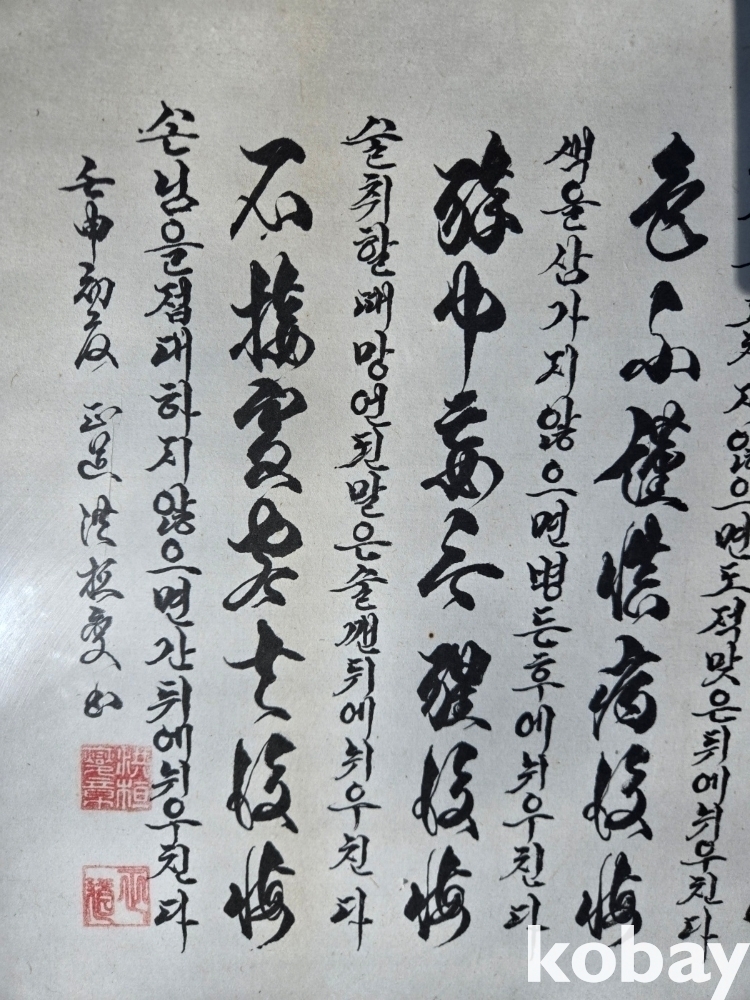 지않으면도적맞은뒤에뉘우친다
色不謹愼病後悔
색을삼가지않으면병든후에뉘우친다
醉中妄言醒後悔
술취할때망언된말은술깬뒤에뉘우친다
不接賓客去後悔
손님을접대하지않으면간뒤에뉘우친다
壬申初夏 洪桓燮 書
洪桓燮章
kobay